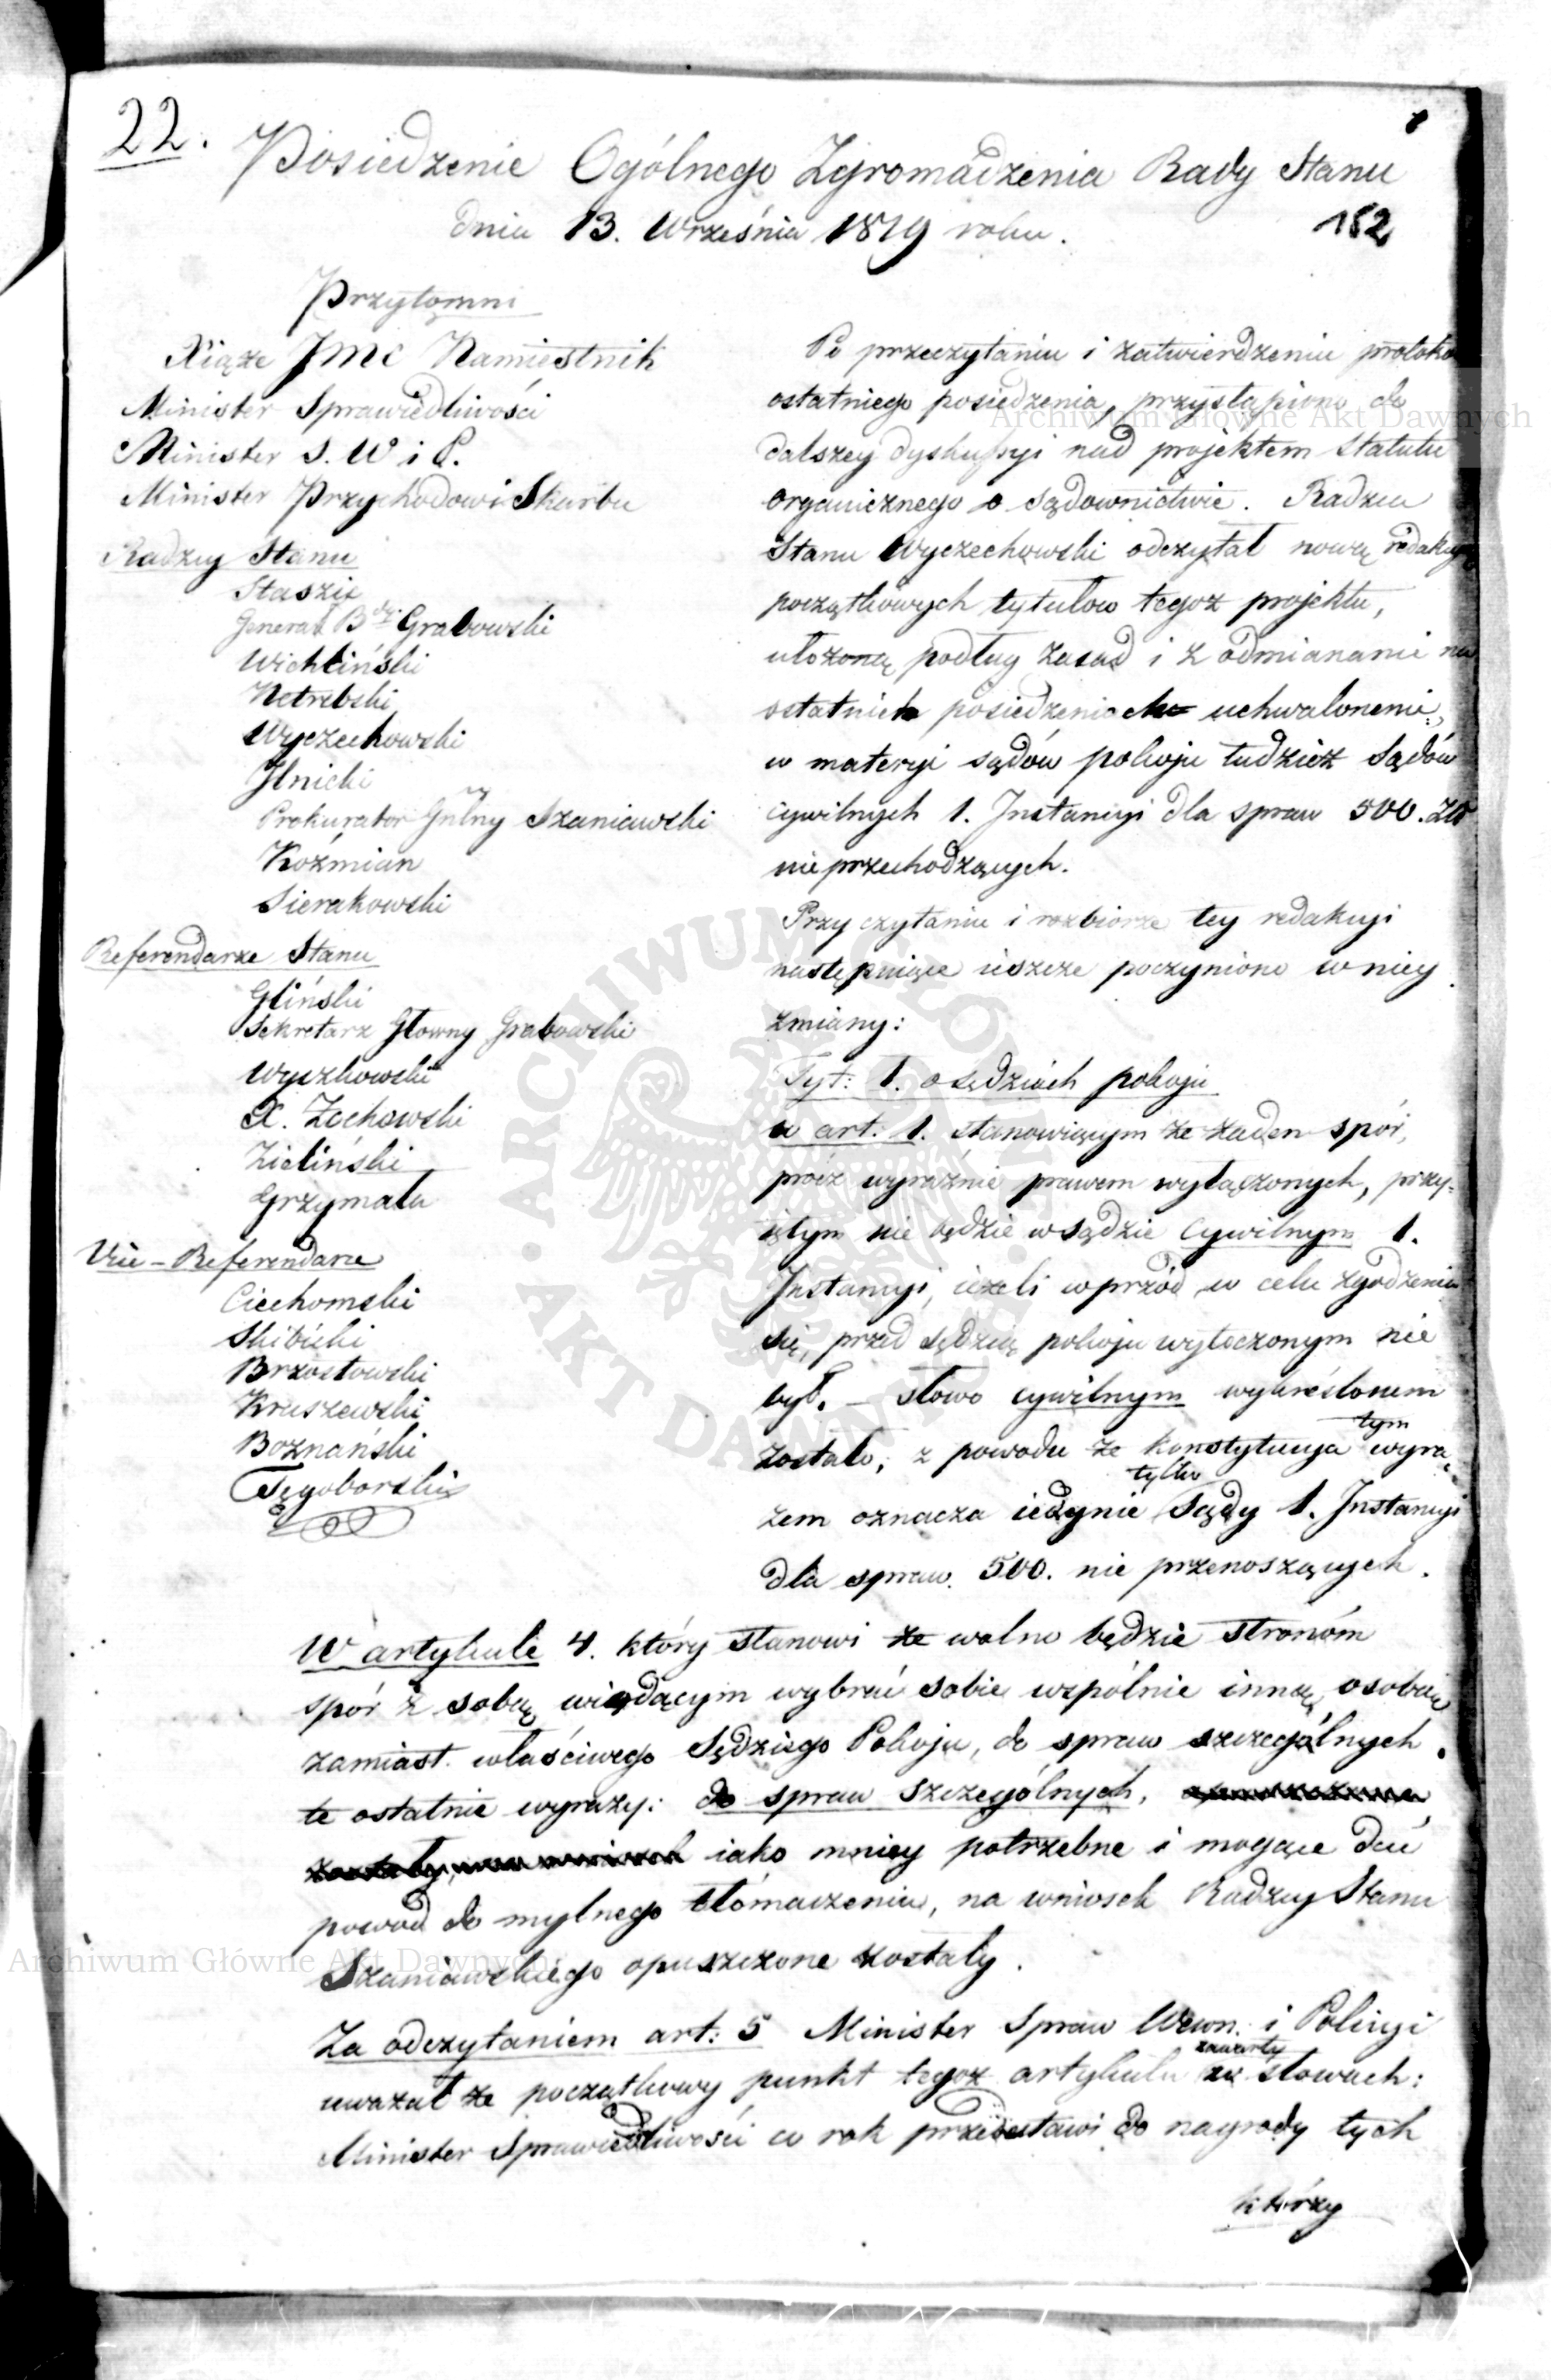 22.
Posiedzenie Ogólnego Zgromadzenia Rady Stanu
dnia 13. Września 1819 roku.
152
Przytomni
Xiąże Jmc Namiestnik
Minister Sprawiedliwości
Minister S. W i P.
Minister Przychodow i Skarbu
Radzcy Stanu
Staszic
Generał Bdy Grabowski
Wichliński
Netrebski
Wyczechowski
Jlnicki
Prokurator Gnlny Szaniawski
Koźmian
Sierakowski
Referendarze Stanu
Gliński
Sekretarz Głowny Grabowski
Wyczkowski
X. Zochowski
Zieliński
Grzymała
Vice-Referendarze
Ciechomski
Skibicki
Brzostowski
Kruszewski
Boznański
Tęgoborski
Po przeczytaniu i zatwierdzeniu protoko
ostatniego posiedzenia, przystąpiono do
dalszey dyskussyi nad projektem statutu
organicznego o sądownictwie. Radzca
Stanu Wyczechowski odczytał nową redakcyą
początkowych tytułow tegoż projektu,
ułożoną podług zasad i z odmianami na
ostatnich posiedzeniach uchwalonemi,
w materyi sądów pokoju tudzież Sądów
cywilnych 1. Jnstancyi dla spraw 500. Zł
nieprzechodzących.
Przy czytaniu i rozbiorze tey redakcyi
następuiące ieszcze poczyniono w niey
zmiany:
Tyt: 1. o sędziach pokoju
w art: 1. stanowiącym że żaden spór,
prócz wyraźnie prawem wyłączonych, przy=
iętym nie będzie w sądzie cywilnym 1.
Jnstancyi, ieżeli wprzód, w celu zgodzenia
się, przed sędzią pokoju wytoczonym nie
był. – słowo cywilnym wykreślonem
zostało, z powodu że konstytucya tym wyra=
zem oznacza iedynie tylko Sądy 1. Jnstancyi
dla spraw 500. nie przenoszących.
W artykule 4. który stanowi że wolno będzie stronóm
spór z sobą wiodącym wybrać sobie wspólnie inną osobę
zamiast właściwego Sędziego Pokoju, do spraw szczególnych.
te ostatnie wyrazy: do spraw szczególnych,
iako mniey potrzebne i mogące dać
powod do mylnego tłómaczenia, na wniosek Radzcy Stanu
Szaniawskiego opuszczone zostały.
Za odczytaniem art: 5 Minister Spraw Wewn. i Policyi
uważał że początkowy punkt tegoż artykułu zawarty w słowach:
Minister Sprawiedliwości co rok przedstawi do nagrody tych
którzy
Archiwum Główne Akt Dawnych
Archiwum Główne Akt Dawnych
ARCHIWUM GŁÓWNE AKT DAWNYCH